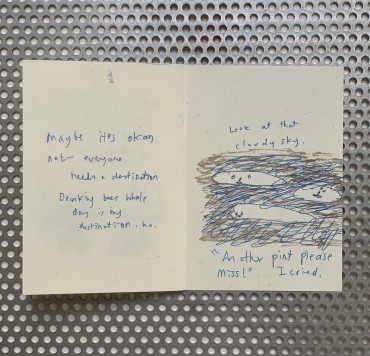 Maybe its okay
not everyone
needs a destination
Drinking beer whole
day is my
destination. ha.
Look at that
cloudy sky.
"Another pint please
Miss!" I cried.